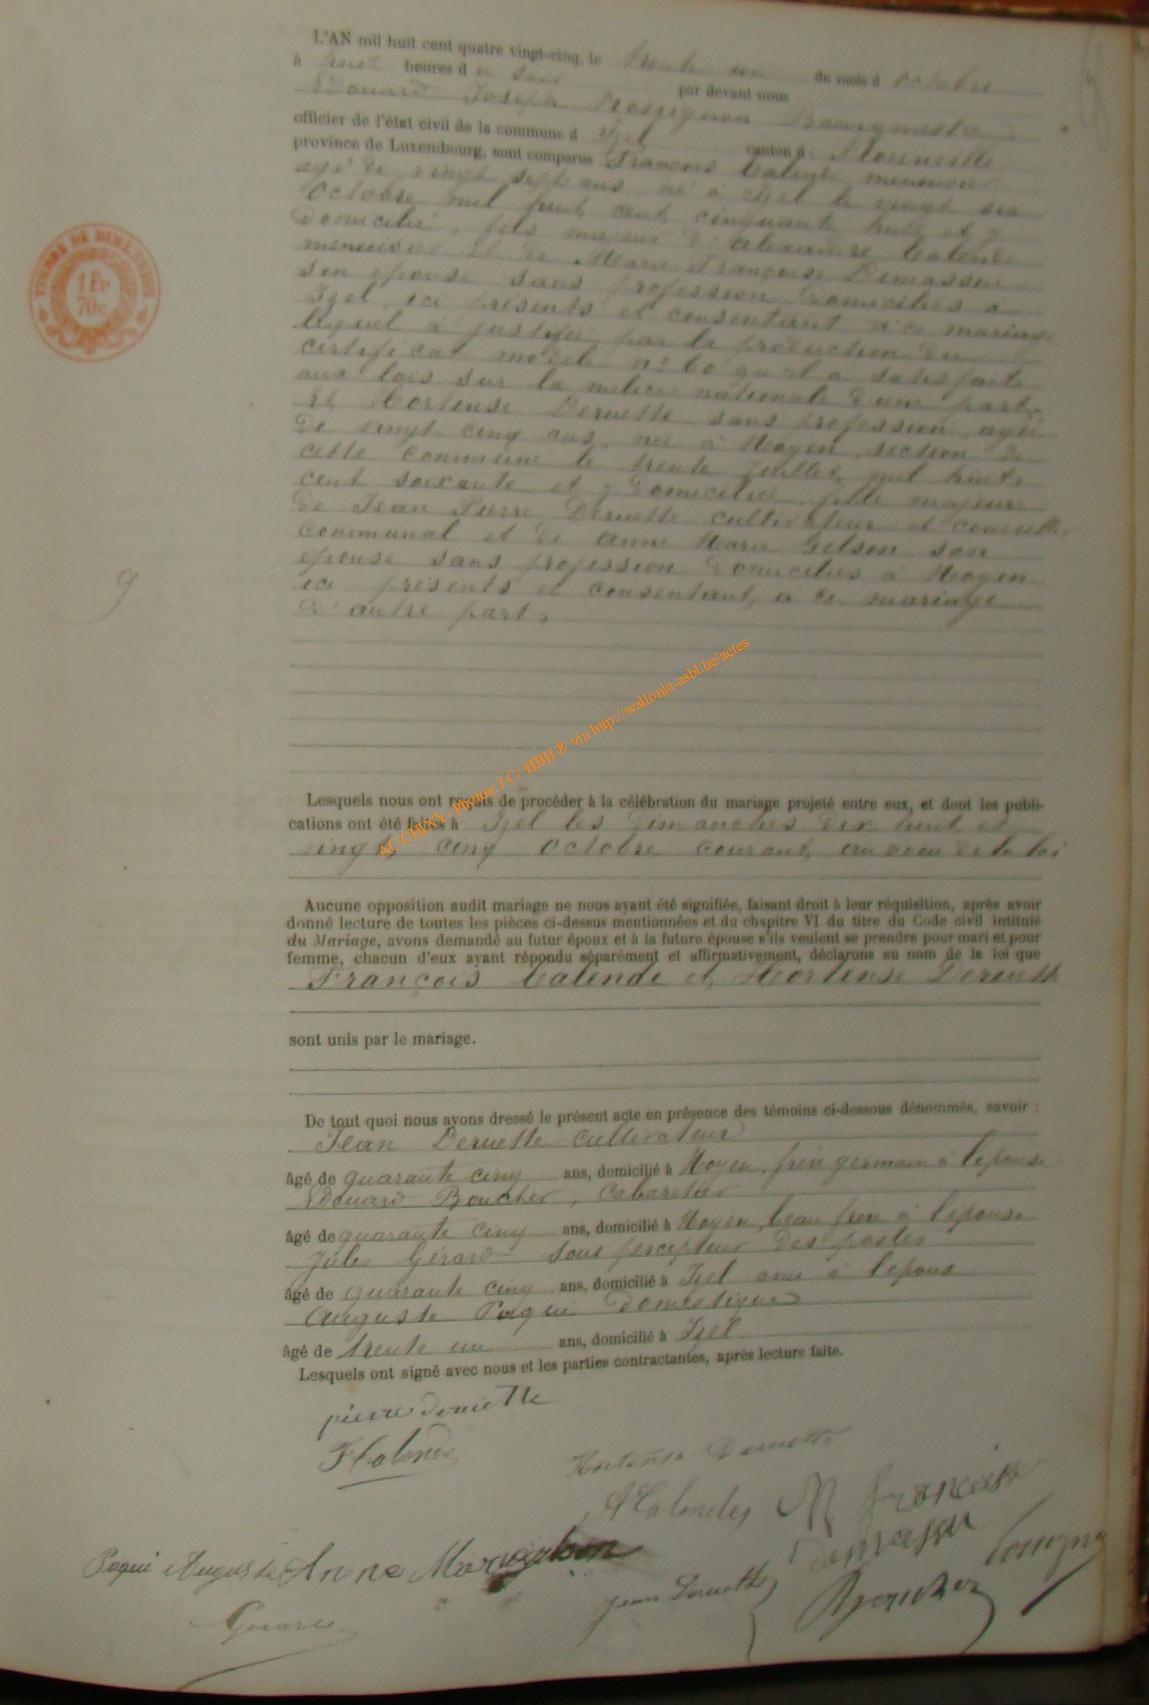 L'AN mil huit cent quatre vingt-cinq, le trente un du mois d octobre
à huit heures d u soir par devant nous
Edouard Joseph Rossignon Bourgmestre
officier de l'état civil de la commune d Izel canton d e Florenville
province de Luxembourg, sont comparus François Calende menuisier
agé de vingt sept ans né à Izel le vingt six
Octobre mil huit cent cinquante huit et y
domicilié, fils majeur d'Alexandre Calende
menuisier et de Marie Françoise Demasse
son épouse sans profession, domiciliés à
Izel, ici présents et consentant à ce mariage
lequel à justifié par la production du
certificat modèle n° 60 qu'il a satisfaits
aux lois sur la milice nationale d'une part,
Et Hortense Deruette sans profession, agée
de vingt cinq ans, née à Moyen, section de
cette commune le trente juillet mil huit
cent soixante et y domiciliée, fille majeure
de Jean Pierre Deruette cultivateur et conseiller
communal et de Anne Marie Gelson son
épouse sans profession domiciliés à Moyen
ici présents et consentant, à ce mariage
d'autre part,
Lesquels nous ont requis de procéder à la célébration du mariage projeté entre eux, et dont les publi-
cations ont été faites à Izel les dimanches dix huit et
vingt cinq octobre courant, au vœu de la loi
Aucune opposition audit mariage ne nous ayant été signifiée, faisant droit à leur réquisition, après avoir
donné lecture de toutes les pièces ci-dessus mentionnées et du chapitre VI du titre du Code civil intitulé
du Mariage, avons demandé au futur époux et à la future épouse s'ils veulent se prendre pour mari et pour
femme, chacun d'eux ayant répondu séparément et affirmativement, déclarons au nom de la loi que
François Calende et Hortense Deruette
sont unis par le mariage.
De tout quoi nous avons dressé le présent acte en présence des témoins ci-dessous dénommés, savoir :
Jean Deruette cultivateur
âgé de quarante cinq ans, domicilié à Moyen, frère germain à l'épouse
Edouard Boucher, cabaretier
âgé de quarante cinq ans, domicilié à Moyen, beau frère à l'épouse
Jules Gérard sous percepteur des postes
âgé de quarante cinq ans, domicilié à Izel ami à l'époux
Auguste Paqui domestique
âgé de trente un ans, domicilié à Izel
Lesquels ont signé avec nous et les parties contractantes, après lecture faite.
pierre deruette
F Calende
Hortense Deruette
A Calende M françoise
demasse
Paqui Auguste Anne Marie
Jean Deruette Boucher
Gérard
9
TIMBRE DE DIMENSION
1 Fr
70c
AC CHINY- Photos J.C/ HBH ® via http://wallonia-asbl.be/actes